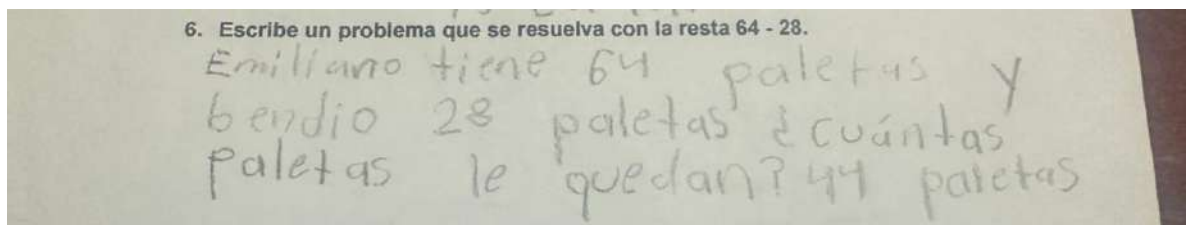 6. Escribe un problema que se resuelva con la resta 64 - 28.
Emiliano tiene 64 paletas y
bendio 28 paletas ¿cuántas
paletas le quedan? 44 paletas